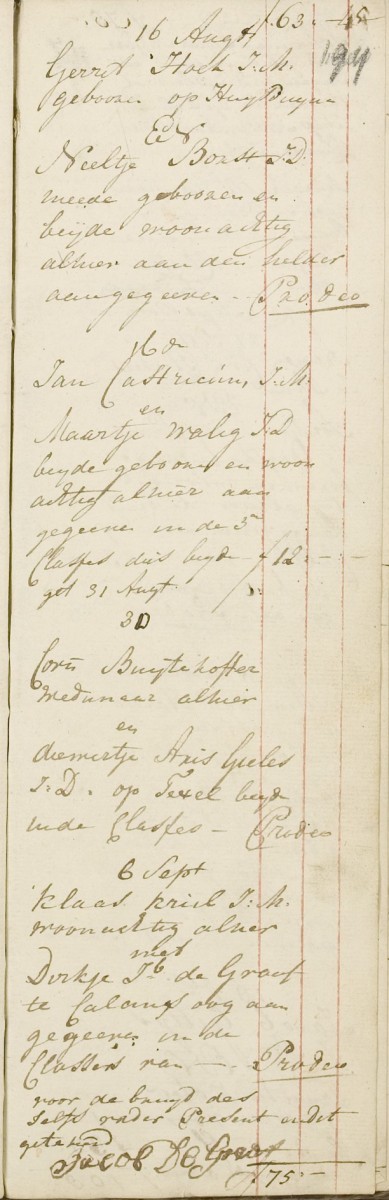 ƒ 63:-45
16 Augst
191
Gerrit Hoek J:M.
gebooren op Huysduynen
En
Neeltje Bonst J:D:
meede gebooren en
beijde woonachtig
alhier aan den helder
aangegeeven - Pro deo
16 do
Jan Castricúm J.M.
en
Maartje Walig J:D
beijde gebooren en woon
achtig alhier aan
gegeeven in de 5e
Classes dús beijde ƒ12:-:-
get 31 Augt.
30
Corn Buytehoffer
Weduwnaar alhier
en
diewertje Aris Gieles
J:D. op Texel beijde
inde Classes - Prodeo
6 Sept
Klaas Kriel J:M.
woonachtig alhier
met
Dirkje Jb de Graaf
te Calans oog aan
gegeeven in de
Classes van - Prodeo
voor de bruyd des
selfs vader Present en dit
getekend
Jacob De Graaf
ƒ75:-